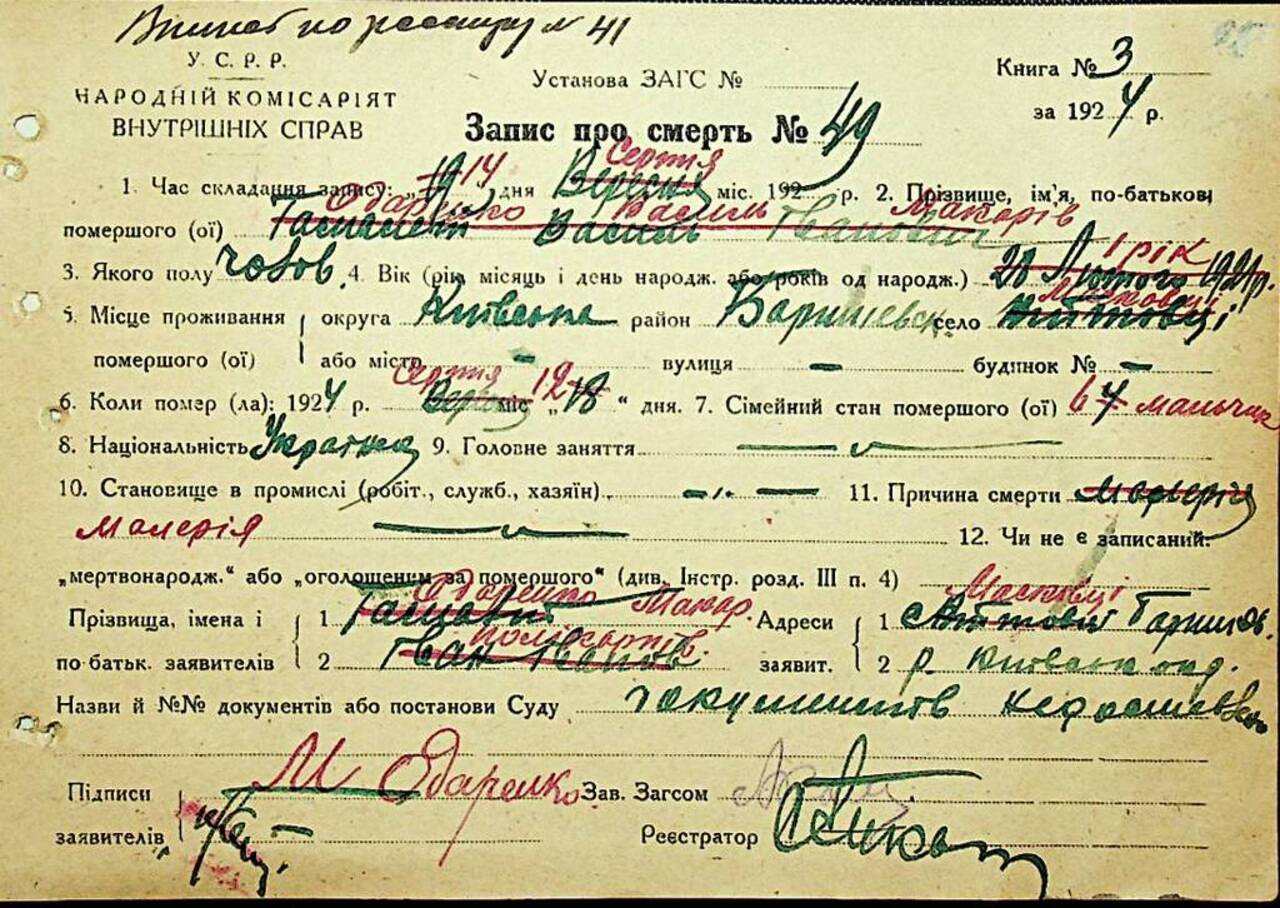 по реестру № 41
У. С. Р. Р.
НАРОДНІЙ КОМІСАРІЯТ
ВНУТРІШНІХ СПРАВ
Установа ЗАГС №
Книга № 3
за 1924 р.
Запис про смерть № 49
Серпня
1. Час складання запису: „ 14 " дня Вересня міс. 192 р. 2. Прізвище, ім'я, по-батькові
Одаренко Василь Макарів
помершого (ої) Василь Іванович
1 рік
3. Якого полу чолов. 4. Вік (рік, місяць і день народж. або років од народж.) 20 Лютого 1921 р.
Масковці
5. Місце проживання округа Київська район Баришевск. село
помершого (ої) або місто - вулиця - будинок № -
Серпня 12
6. Коли помер (ла): 1924 р. міс „ 18 " дня. 7. Сімейний стан помершого (ої) 4 мальчик
8. Національність Українец 9. Головне заняття
10. Становище в промислі (робіт., служб., хазяїн) 11. Причина смерти малерія
Малерія 12. Чи не є записаний:
„мертвонародж." або „оголошеним за помершого" (див. Інстр. розд. III п. 4)
Одаренко Макар Масковці
Прізвища, імена і 1 Адреси 1
Полікарпів.
по батьк. заявителів 2 Іван Іванов заявит. 2 р. Київськ окр.
Назви й №№ документів або постанови Суду документов
М Одаренко
Підписи Зав. Загсом
заявителів Реєстратор